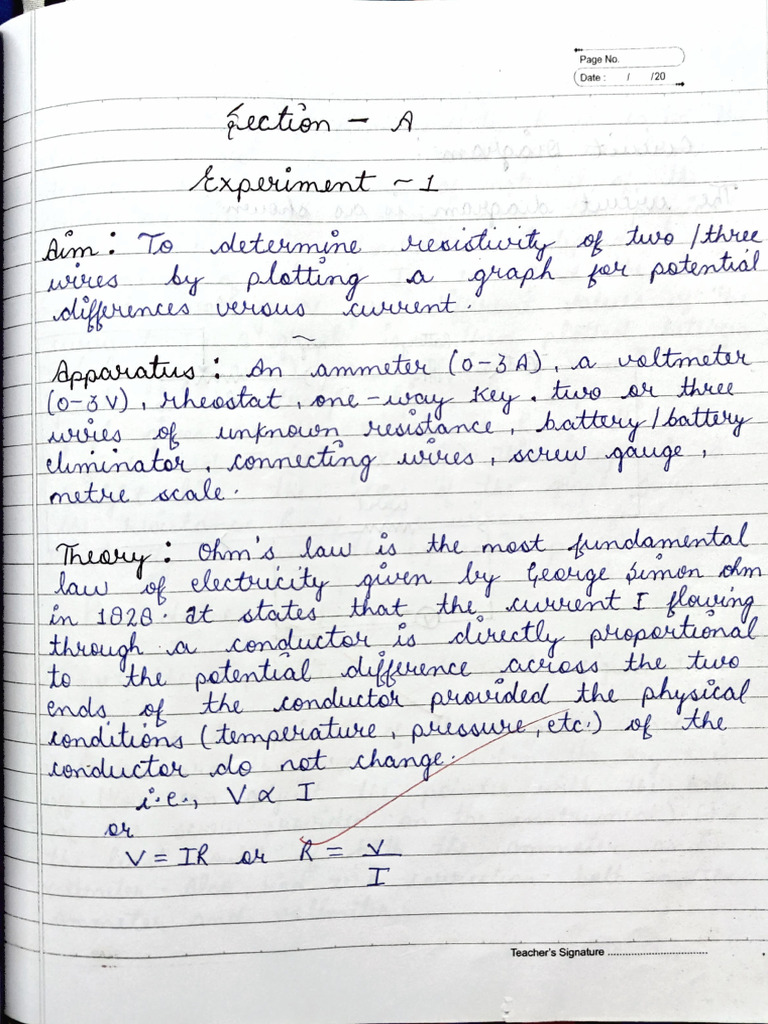 Page No.
Date : / /20
Section - A
Experiment ~ 1
Aim : To determine resistivity of two / three
wires by plotting a graph for potential
differences versus current.
Apparatus : An ammeter (0-3A), a voltmeter
(0-3V), rheostat, one-way key. two or three
wires of unknown resistance, battery/battery
eliminator, connecting wires, screw gauge,
metre scale.
Theory : Ohm's law is the most fundamental
law of electricity given by George Simon ohm
in 1828. It states that the current I flowing
through a conductor is directly proportional
to the potential difference across the two
ends of the conductor provided the physical
conditions (temperature, pressure, etc.) of the
conductor do not change.
i.e., V ∝ I
or
V = IR or R = V/I
Teacher's Signature ..................................